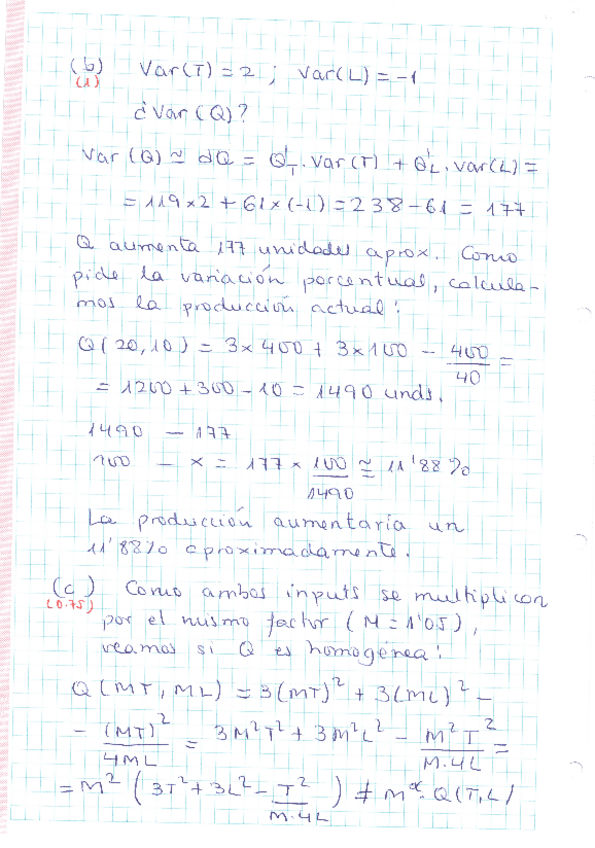 (b) Var(T) = 2 ; Var(L) = -1
(1)
¿Var(Q)?
Var(Q) ≃ dQ = Q'T . Var(T) + Q'L . Var(L) =
= 119×2 + 61×(-1) = 238 - 61 = 177
Q aumenta 177 unidades aprox. Como
pide la variación porcentual, calcula-
mos la producción actual:
Q(20,10) = 3×400 + 3×100 - 400/40 =
= 1200 + 300 - 10 = 1490 unds.
1490 — 177
100 — x = 177 × 100/1490 ≅ 11'88%
La producción aumentaría un
11'88% aproximadamente.
(c) Como ambos inputs se multiplican
(0.75) por el mismo factor (M = 1'05),
veamos si Q es homogénea:
Q(MT, ML) = 3(MT)² + 3(ML)² -
- (MT)²/4ML = 3M²T² + 3M²L² - M²T²/M.4L =
= M² (3T² + 3L² - T²/M.4L) ≠ Mα. Q(T,L)